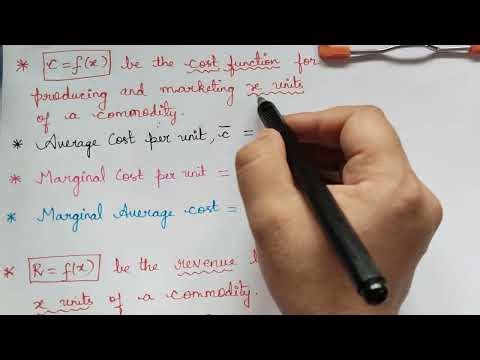 * C = f(x) be the cost function for
producing and marketing x units
of a commodity.
* Average Cost per unit, c̄ =
* Marginal Cost per unit =
* Marginal Average cost =
* R = f(x) be the revenue
x units of a commodity.